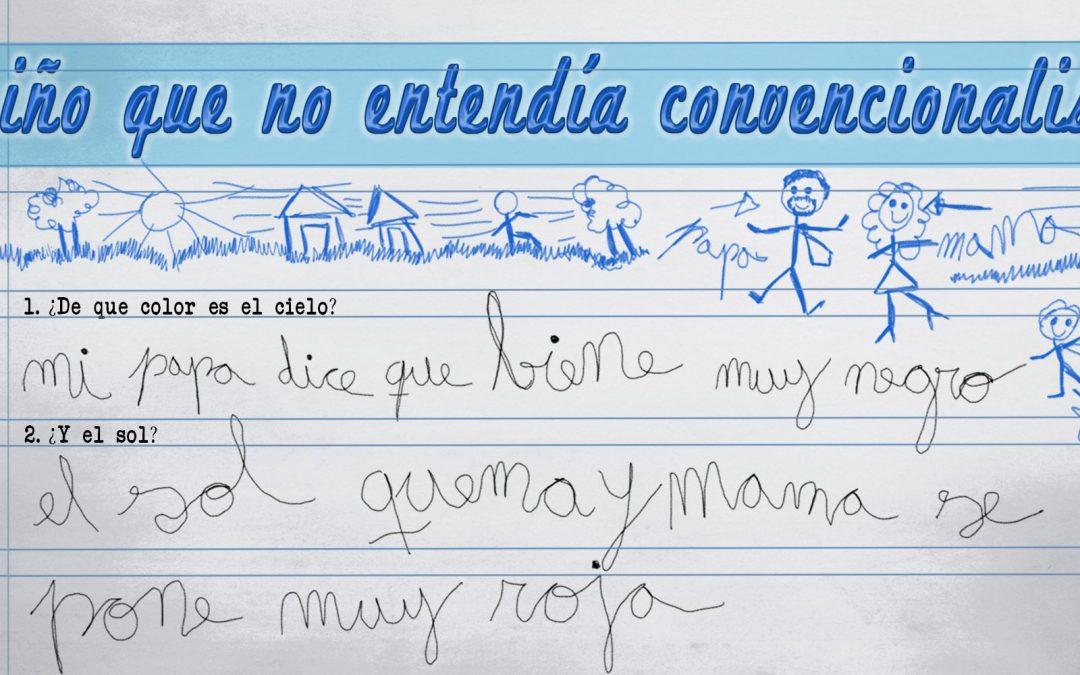 iño que no entendía convencionalis
papa
mama
1. ¿De que color es el cielo?
mi papa dice que biene muy negro
2. ¿Y el sol?
el sol quema y mama se
pone muy roja